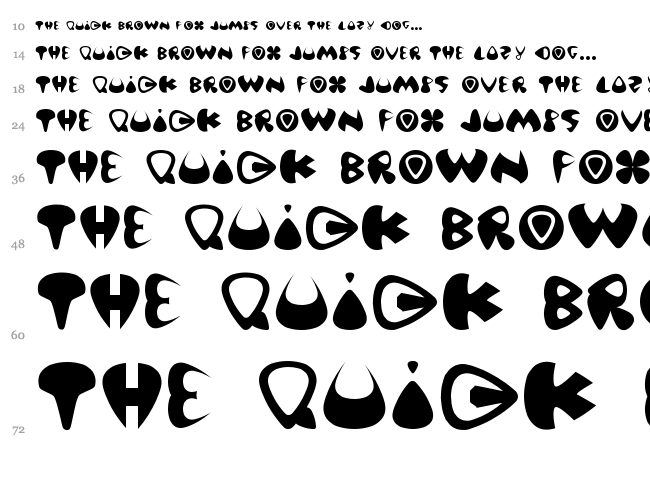 10 THE QUICK BROWN FOX JUMPS OVER THE LAZY DOG...
14 THE QUICK BROWN FOX JUMPS OVER THE LAZY DOG...
18 THE QUICK BROWN FOX JUMPS OVER THE LAZY
24 THE QUICK BROWN FOX JUMPS OVE
36 THE QUICK BROWN FOX
48 THE QUICK BROWN
60 THE QUICK BRO
72 THE QUICK